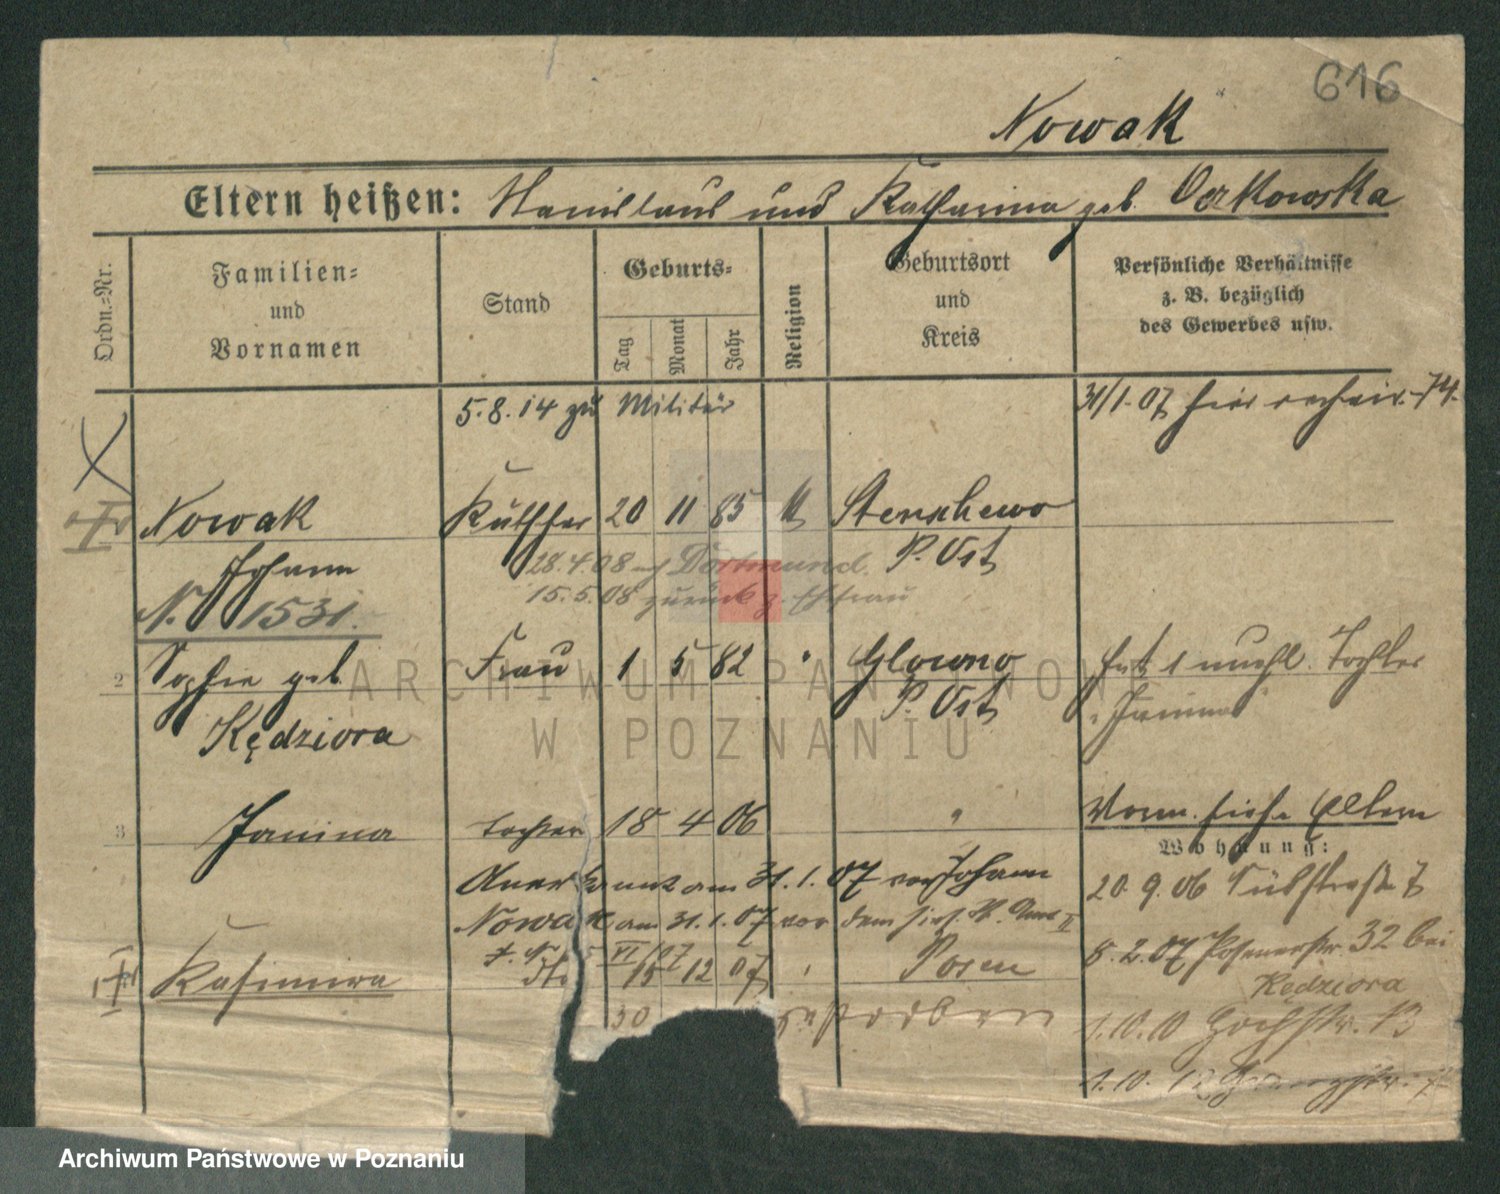 616
Nowak
Eltern heißen: Stanislaus und Katharina geb. Verkowska
Ordn.=Nr.
Familien=
und
Vornamen
Stand
Geburts=
Tag
Monat
Jahr
Religion
Geburtsort
und
Kreis
Persönliche Verhältnisse
z. B. bezüglich
des Gewerbes usw.
5.8.14 zu Militär
31/1.07 hier
Nowak
Johann
N. 1531.
Kutscher 20 11 85 Stenschewo
P. Ost
28.4.08 Dortmund.
15.5.08 zurück z. Ehefrau
2 Sophie geb.
Kędziora
Frau 1 5 82 " Glowno
P. Ost
hat 1 unehl. Tochter
"Janina"
3 Janina Tochter 18 4 06 "
Vorm. siehe Eltern
Wohnung:
Anerkannt am 31.1.07 von Johann
Nowak am 31.1.07 vor dem
VI/07
Kasimira dto 15 12 07 " Posen
30 gestorben
20.9.06
8.2.07 Posenerstr. 32 bei
Kędziora
1.10.10 Hochstr.
1.10.12
ARCHIWUM PAŃSTWOWE
W POZNANIU
Archiwum Państwowe w Poznaniu